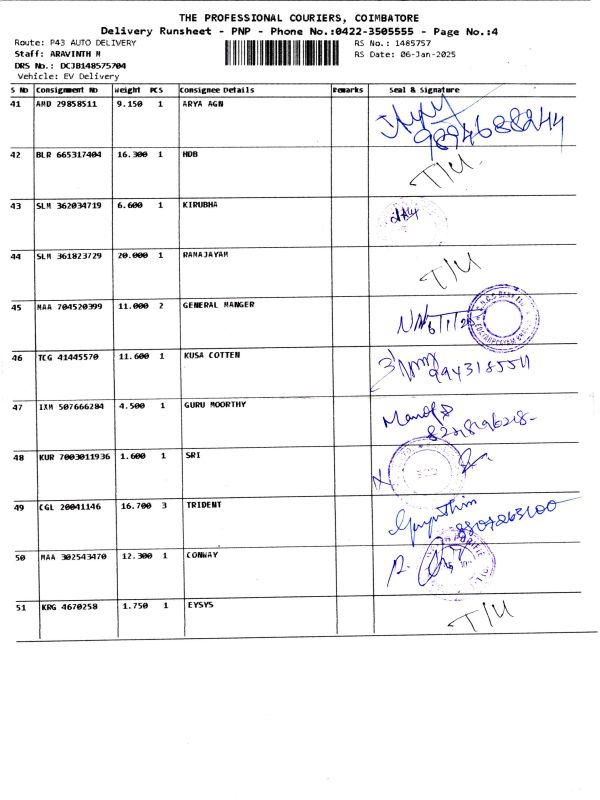 THE PROFESSIONAL COURIERS, COIMBATORE
Delivery Runsheet - PNP - Phone No.:0422-3505555 - Page No.:4
Route: P43 AUTO DELIVERY RS No.: 1485757
Staff: ARAVINTH M RS Date: 06-Jan-2025
DRS No.: DCJB148575704
Vehicle: EV Delivery
S No Consignment No Weight PCS Consignee Details Remarks Seal & Signature
41 AMD 29858511 9.150 1 ARYA AGN
9894688244
42 BLR 665317404 16.300 1 HDB T/U
43 SLM 362034719 6.600 1 KIRUBHA
44 SLM 361823729 20.000 1 RAMAJAYAM T/U
45 MAA 704520399 11.000 2 GENERAL MANGER
46 TCG 41445570 11.600 1 KUSA COTTEN
47 IXM 507666284 4.500 1 GURU MOORTHY
48 KUR 7003011936 1.600 1 SRI
49 CGL 20041146 16.700 3 TRIDENT
8807263100
50 MAA 302543470 12.300 1 CONWAY
51 KRG 4670258 1.750 1 EYSYS T/U